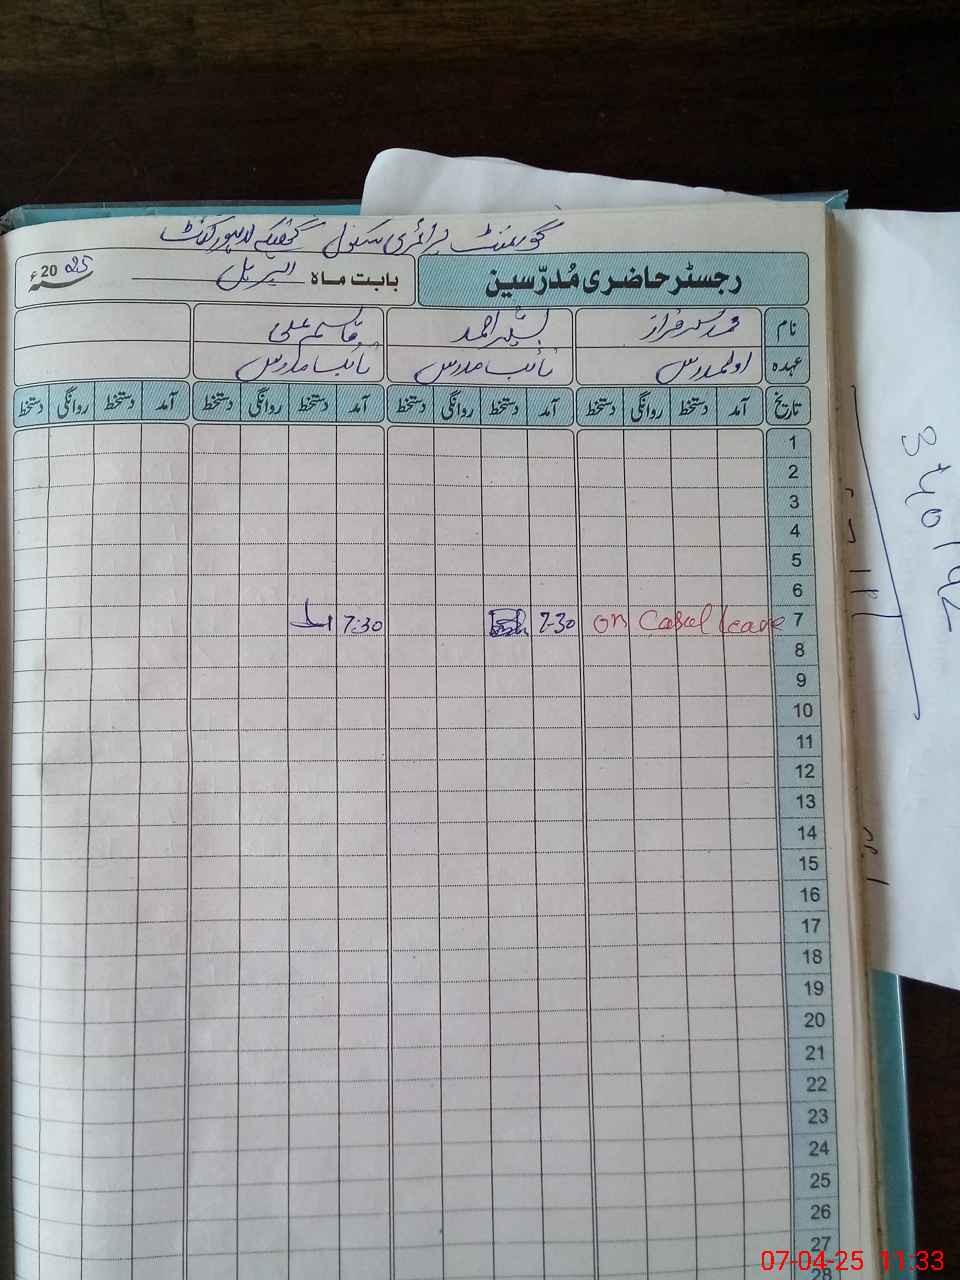 گورنمنٹ پرائمری سکول لاہور کینٹ
رجسٹر حاضری مُدرّسین
بابت ماہ اپریل 2025ء
نام محمد سرفراز بشیر احمد قاسم علی
عہدہ اول مدرس نائب مدرس نائب مدرس
تاریخ آمد دستخط روانگی دستخط آمد دستخط روانگی دستخط آمد دستخط روانگی دستخط آمد دستخط روانگی دستخط
1
2
3
4
5
6
7 on Casul leave 7-30 7:30
8
9
10
11
12
13
14
15
16
17
18
19
20
21
22
23
24
25
26
27
28
07-04-25 11:33